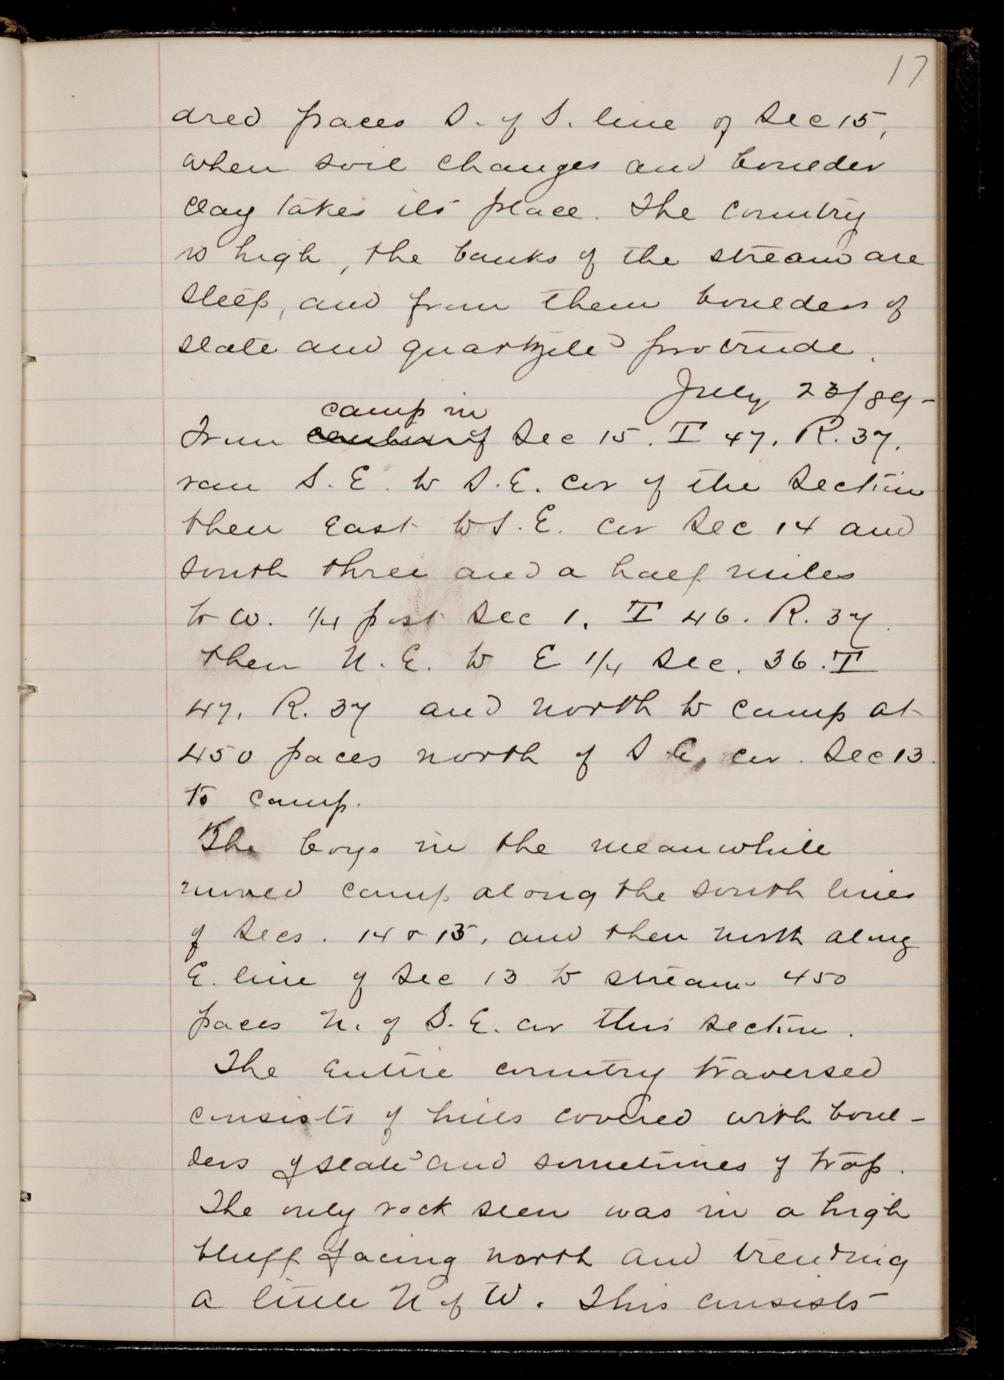 17
dred paces S. of S. line of Sec 15,
when soil changes and boulder
clay takes its place. The country
is high, the banks of the stream are
steep, and from them boulders of
slate and quartzite protrude.
July 23/89-
camp in
From center of Sec 15. T 47. R. 37.
ran S. E. to S.E. cor of the Section
then East to S. E. cor Sec 14 and
south three and a half miles
to W. 1/4 post Sec 1, T 46. R. 37.
then N. E. to E 1/4 Sec. 36. T
47. R. 37 and north to camp at
450 paces north of S E. cor. Sec 13.
to camp.
The boys in the meanwhile
moved camp along the south lines
of Secs. 14 & 13, and then north along
E. line of Sec 13 to stream 450
paces N. of S. E. cor this section.
The entire country traversed
consists of hills covered with boul-
ders of slate and sometimes of trap.
The only rock seen was in a high
bluff facing north and trending
a little N of W. This consists